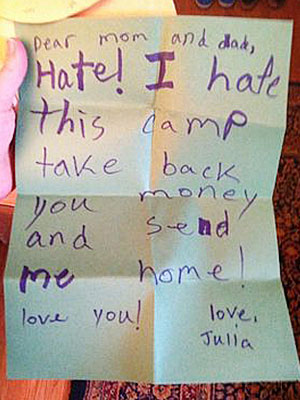 Dear mom and dad,
Hate! I hate
this camp
take back
you money
and send
me home!
love you! love,
Julia